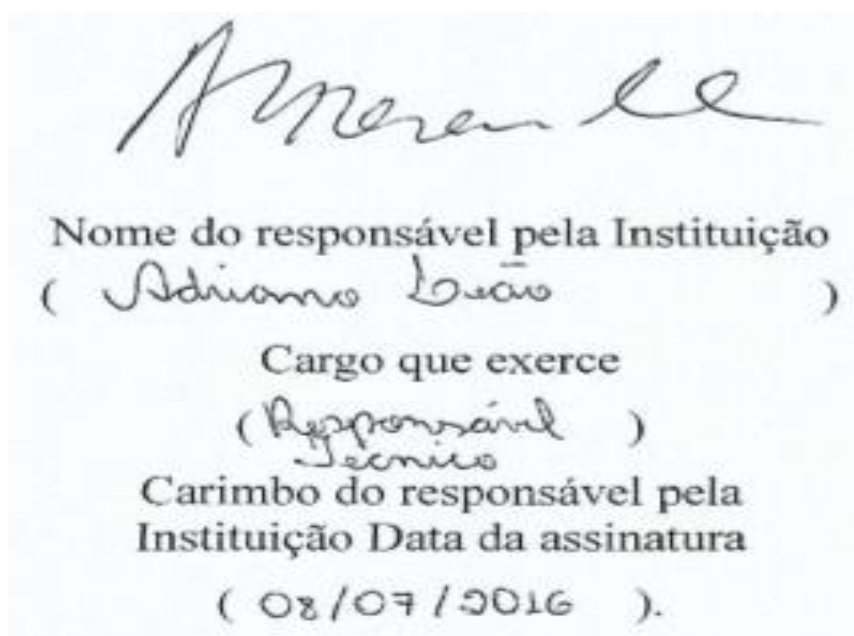 Nome do responsável pela Instituição
( Adriano Leão )
Cargo que exerce
( Responsável )
Tecnico
Carimbo do responsável pela
Instituição Data da assinatura
( 08/07/2016 ).